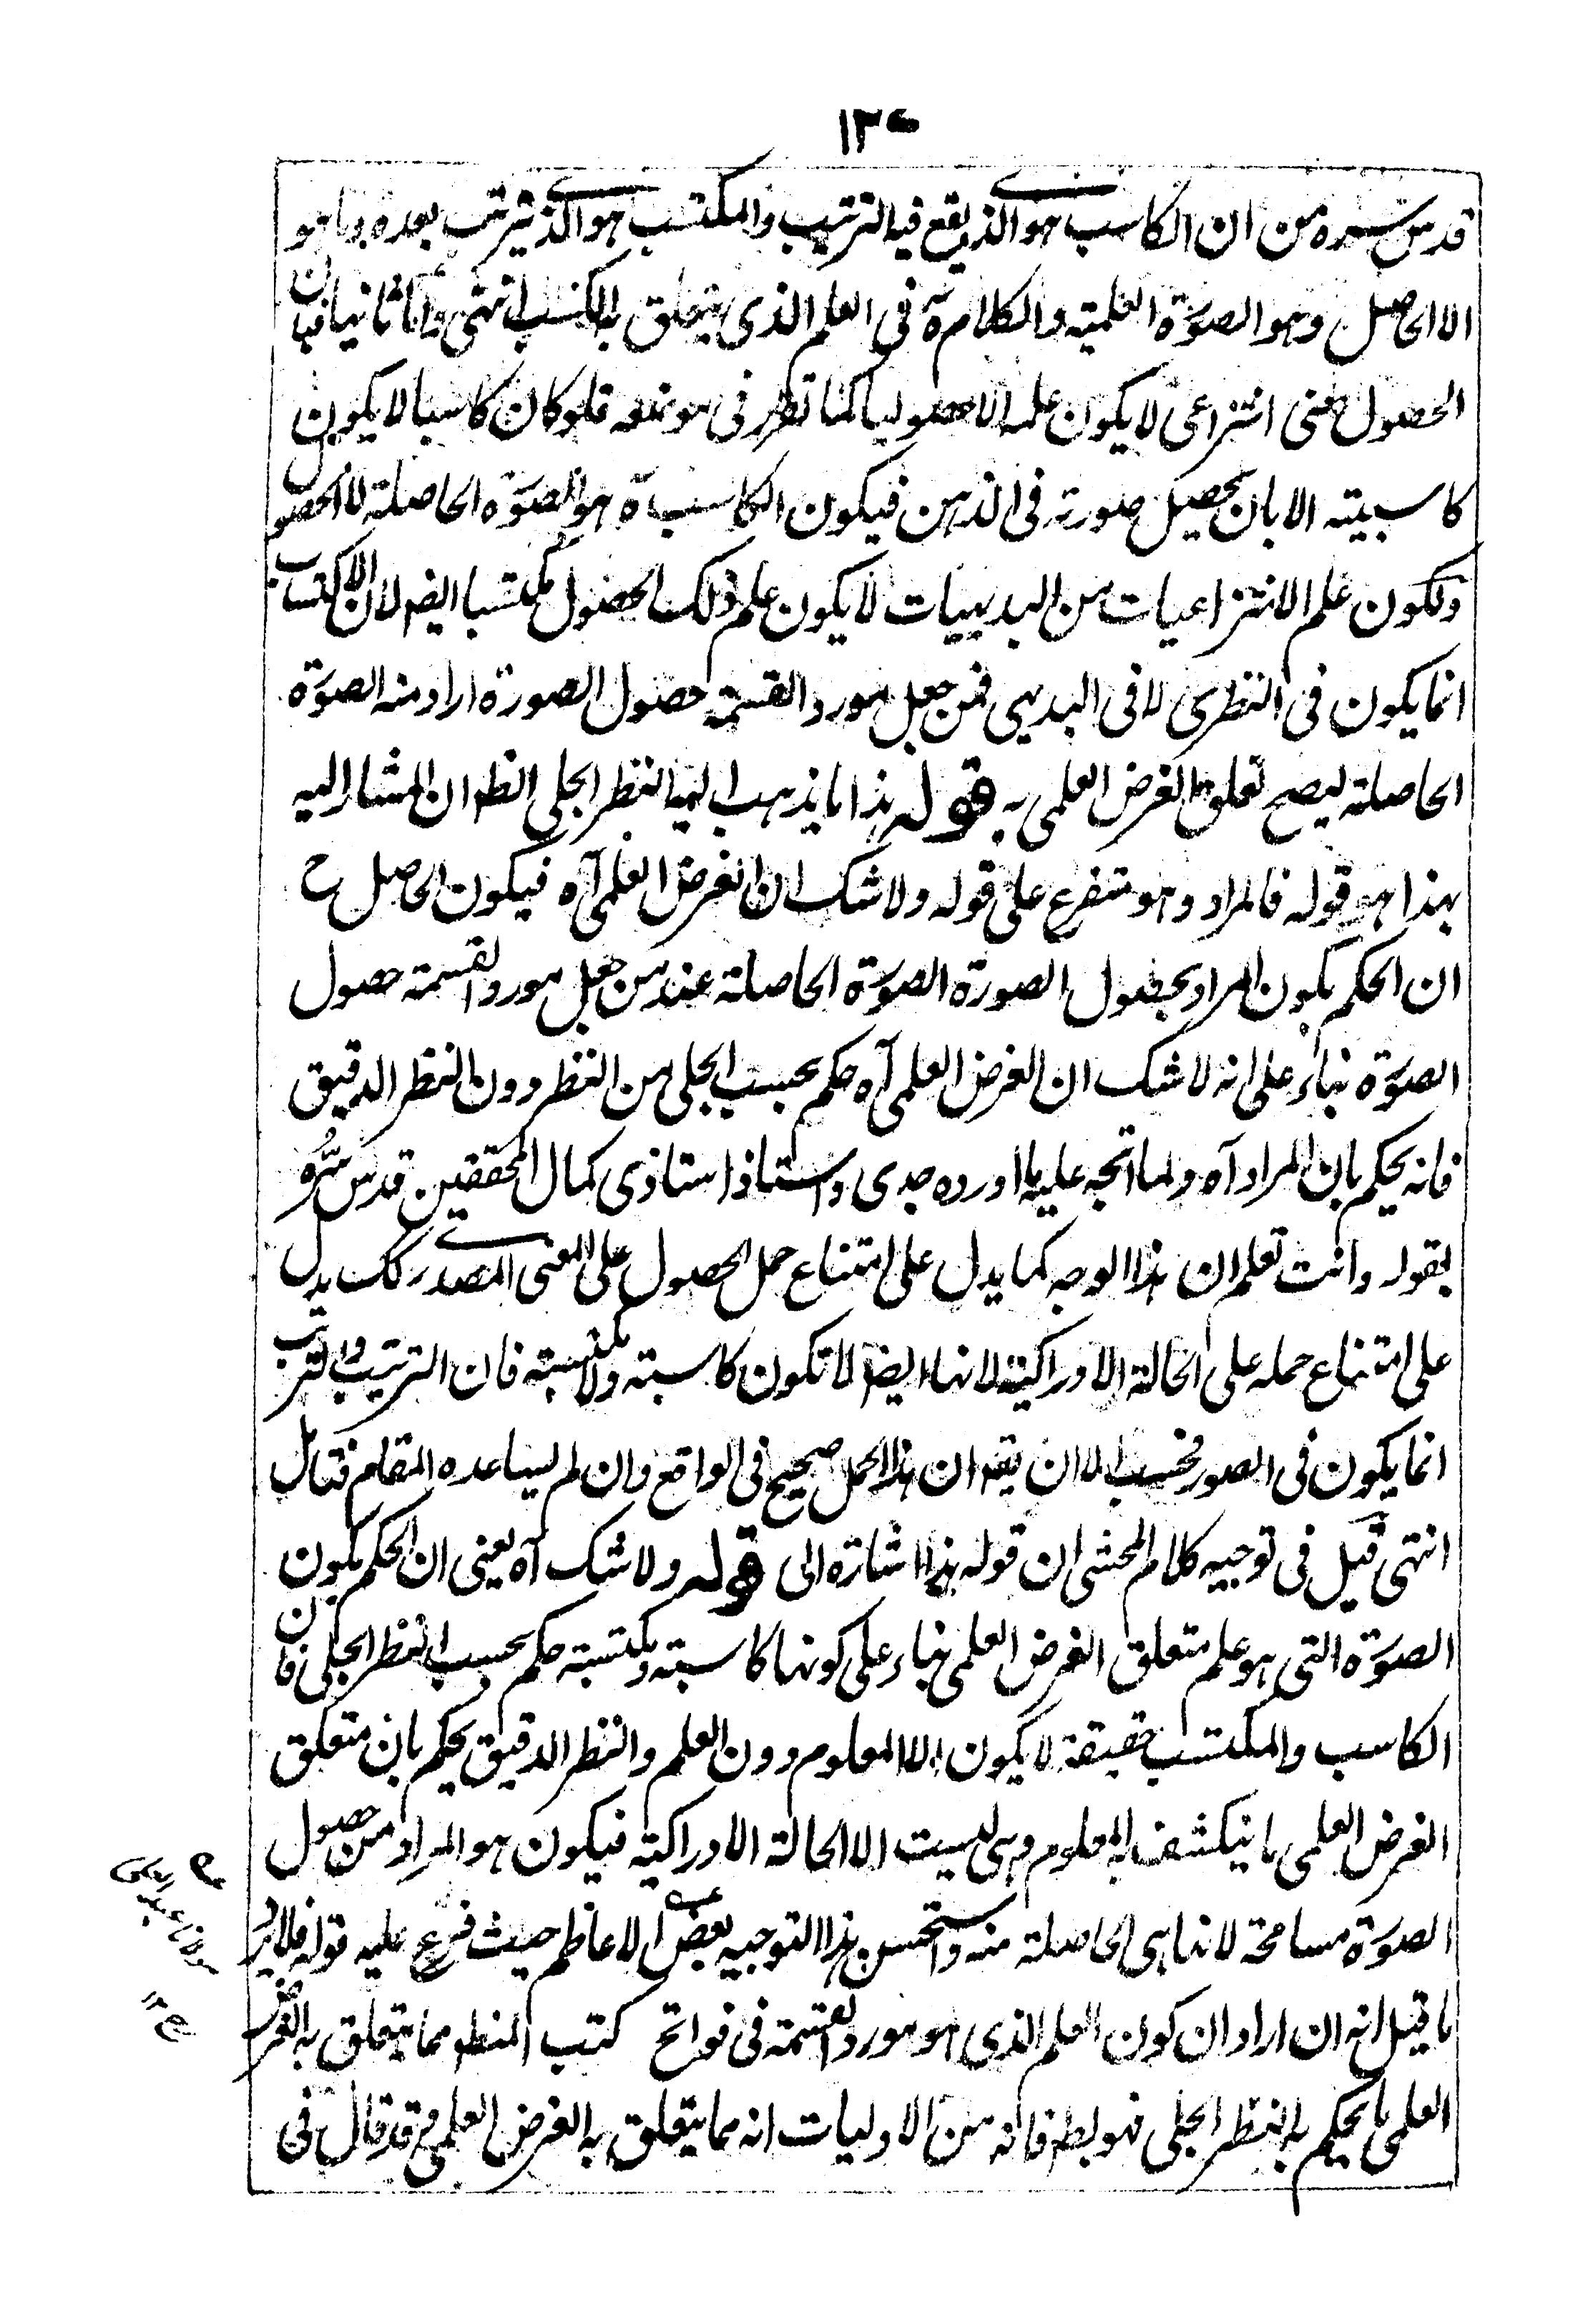 ١٣٠
قدس سره من ان الكاسب هو الذى يقع فيه الترتيب والمكتسب هو الذى يترتب بعده وما هو
الا الحاصل وهو الصورة العلمية والكلام ثمه فى العلم الذى يتعلق به الكسب انتهى واما ثانيا فبان
الحصول معنى انتزاعى لا يكون علمه الا حصوليا كما تقرر فى موضعه فلو كان كاسبا لا يكون
كاسبيته الا بان يحصل صورته فى الذهن فيكون الكاسب ة هو الصورة الحاصلة لا الحصول
ولكون علم الانتزاعيات من البديهيات لا يكون علم ذلك الحصول مكتسبا ايضا لان الاكتساب
انما يكون فى النظرى لا فى البديهى فمن جعل مورد القسمة حصول الصورة اراد منه الصورة
الحاصلة ليصح تعلق الغرض العلمى به قوله هذا ما يذهب اليه النظر الجلى الظ ان المشار اليه
بهذا هو قوله فالمراد وهو متفرع على قوله ولا شك ان الغرض العلمى آه فيكون الحاصل ح
ان الحكم بكون المراد بحصول الصورة الصورة الحاصلة عند من جعل مورد القسمة حصول
الصورة بناء على انه لا شك ان الغرض العلمى آه حكم بحسب الجلى من النظر دون النظر الدقيق
فانه يحكم بان المراد آه ولما اتجه عليه ما اورده جدى واستاذ استاذى كمال المحققين قدس سره
بقوله وانت تعلم ان هذا الوجه كما يدل على امتناع حمل الحصول على المعنى المصدرى كك يدل
على امتناع حمله على الحالة الادراكية لانها ايضا لا تكون كاسبة ولا مكتسبة فان الترتيب والترتب
انما يكون فى الصور فحسب الا ان يقه ان هذا الحمل صحيح فى الواقع وان لم يساعده المقام فتامل
انتهى قيل فى توجيه كلام المحشى ان قوله هذا اشارة الى قوله ولا شك آه يعنى ان الحكم بكون
الصورة التى هو علم متعلق الغرض العلمى بناء على كونها كاسبة ومكتسبة حكم بحسب النظر الجلى فان
الكاسب والمكتسب حقيقة لا يكون الا المعلوم دون العلم والنظر الدقيق يحكم بان متعلق
الغرض العلمى ما ينكشف به المعلوم وهى ليست الا الحالة الادراكية فيكون هو المراد من حصول
الصورة مسامحة لانها هى الحاصلة منه واستحسن هذا التوجيه بعض الاعاظم حيث فرع عليه قوله فلا يرد
ما قيل انه ان اراد ان كون العلم الذى هو مورد القسمة فى فواتح كتب المنط مما يتعلق به الغرض
العلمى ما يحكم به النظر الجلى فهو بط فانه من الاوليات انه مما يتعلق به الغرض العلمى وقد قال فى
مولانا عبد العلى
١٢